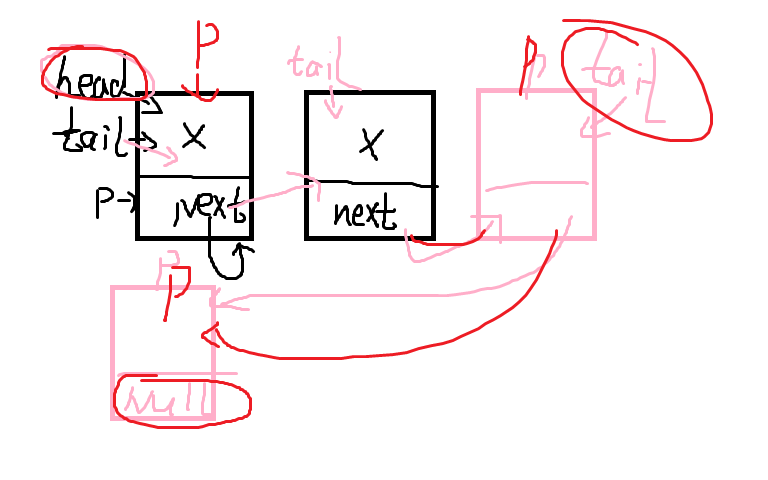 P
head
tail
X
P
next
tail
X
next
p
tail
p
null